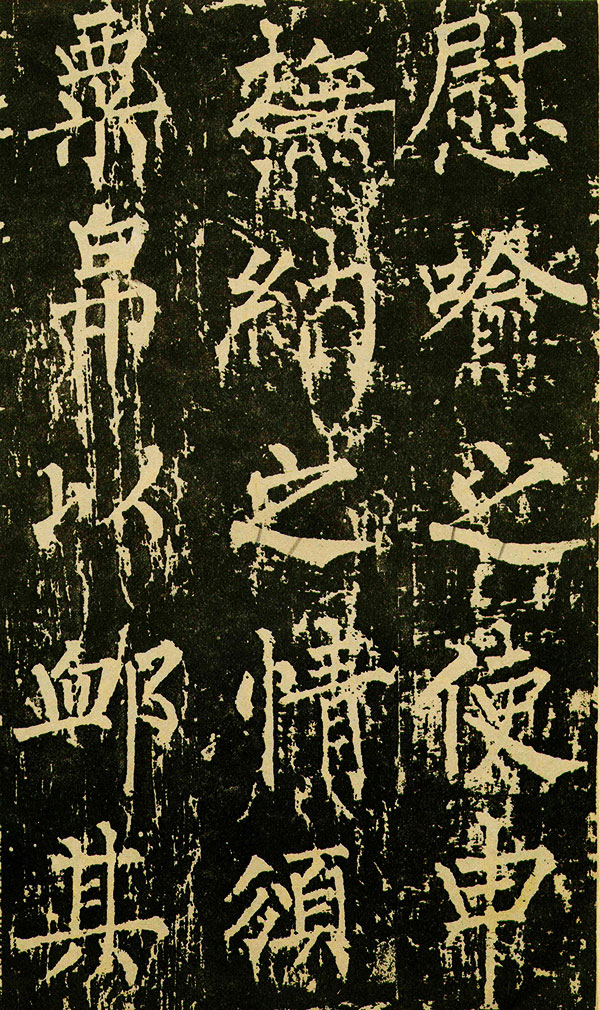 慰喻之使申
撫納之情頒
粟帛以卹其